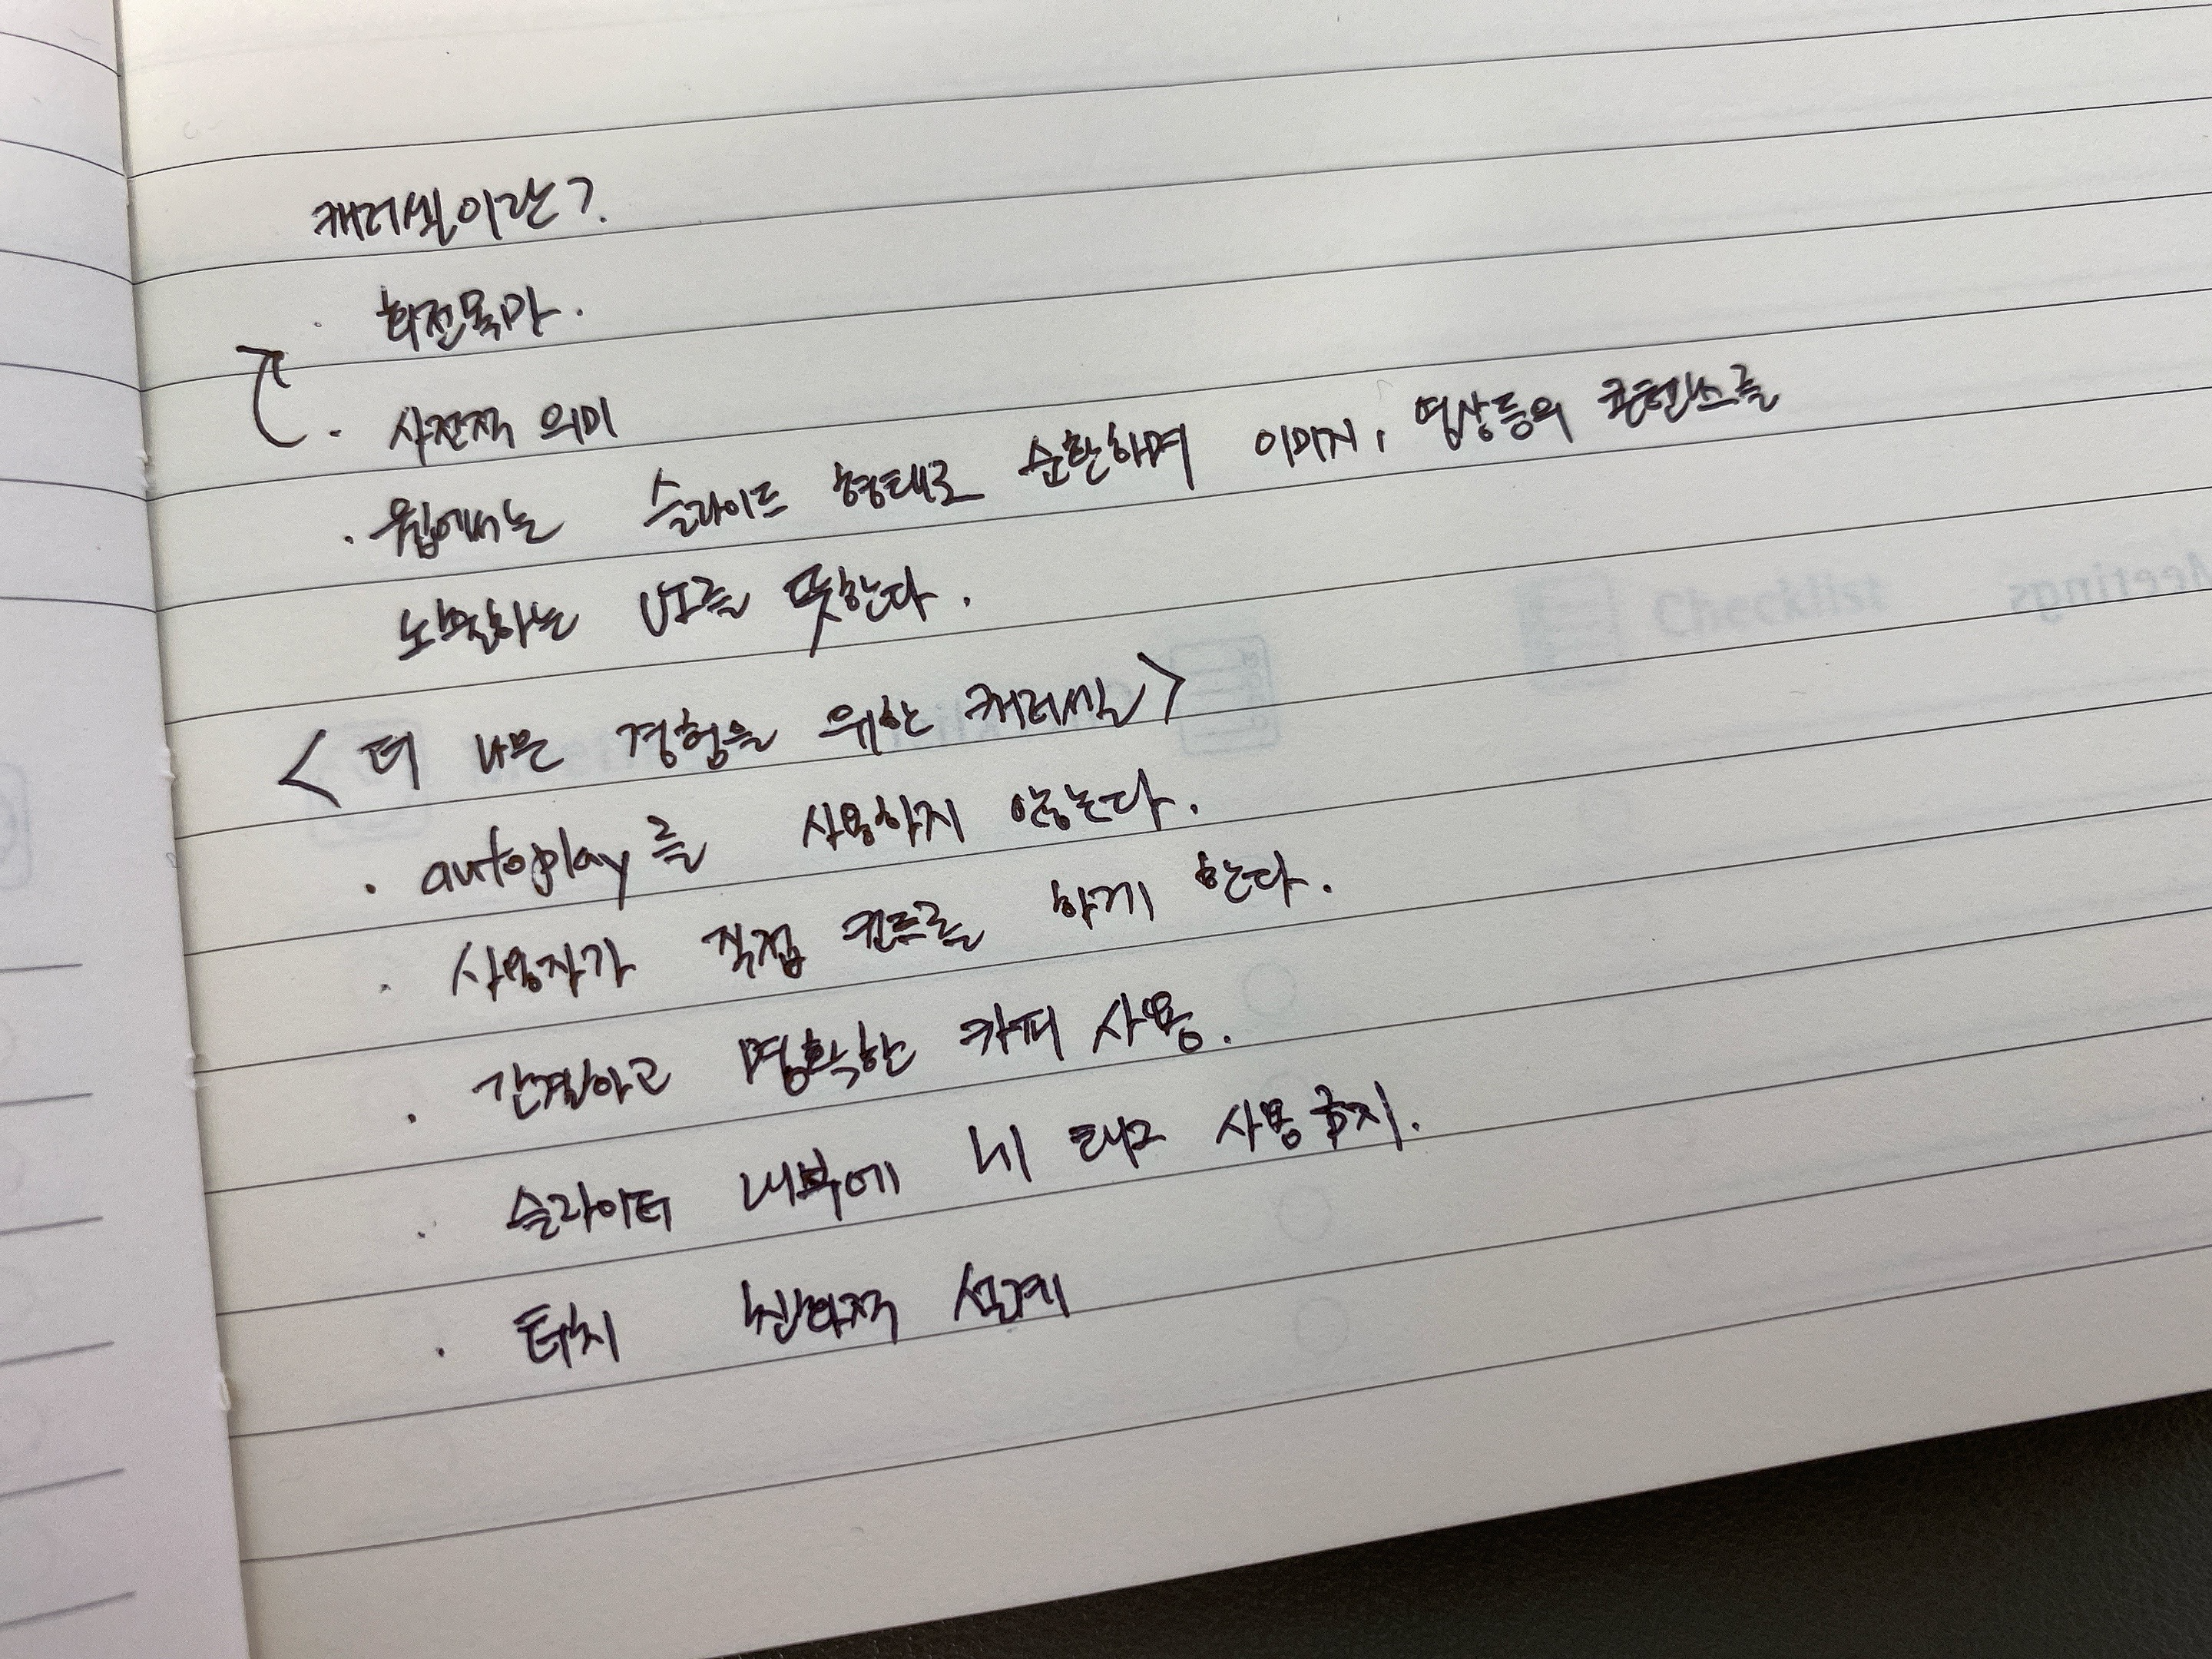 캐러셀이란?
· 회전목마.
· 사전적 의미
· 웹에서는 슬라이드 형태로 순환하며 이미지, 영상등의 콘텐츠를
노출하는 UI를 뜻한다.
<더 나은 경험을 위한 캐러셀>
· autoplay를 사용하지 않는다.
· 사용자가 직접 컨트롤 하게 한다.
· 간결하고 명확한 카피 사용.
· 슬라이더 내부에 태그 사용 금지.
· 터치 친화적 설계
Checklist
Meetings